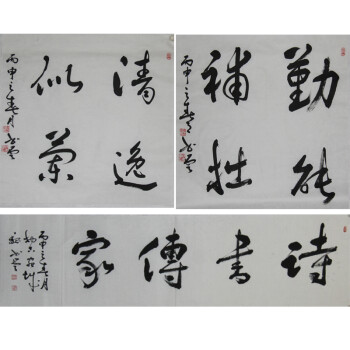 清逸
似蘭
丙申之春月
勤能
補拙
丙申之春
詩書傳家
丙申之春月